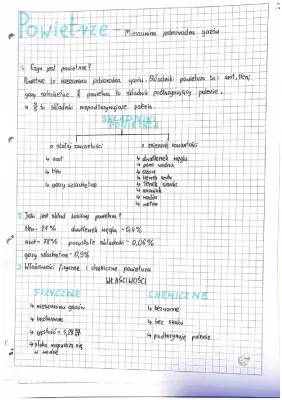 Powietrze - Mieszanina jednorodna gazów
1. Czym jest powietrze?
Powietrze to mieszanina jednorodna gazów. Składniki powietrza to: azot, tlen,
gazy szlachetne. powietrza to składnik podtrzymujący palenie,
a to składniki niepodtrzymujące palenia.
SKŁADNIKI
POWIETRZA
o stałej zawartości
o zmiennej zawartości
↳ azot
↳ dwutlenek węgla
↳ tlen
↳ para wodna
↳ gazy szlachetne
↳ ozon
↳ tlenek
↳ tlenek
↳ amoniak
↳ wodór
↳ metan
2. Jaki jest skład powietrza?
tlen - 21% dwutlenek węgla - 0,4%
azot - 78% pozostałe składniki - 0,06%
gazy szlachetne - 0,9%
3. Właściwości fizyczne i chemiczne powietrza
WŁAŚCIWOŚCI
FIZYCZNE
CHEMICZNE
↳ mieszanina gazów
↳ bezwonne
↳ bezbarwne
↳ bez smaku
↳ gęstość =
↳ podtrzymuje palenie
↳ słabo rozpuszcza się
w wodzie